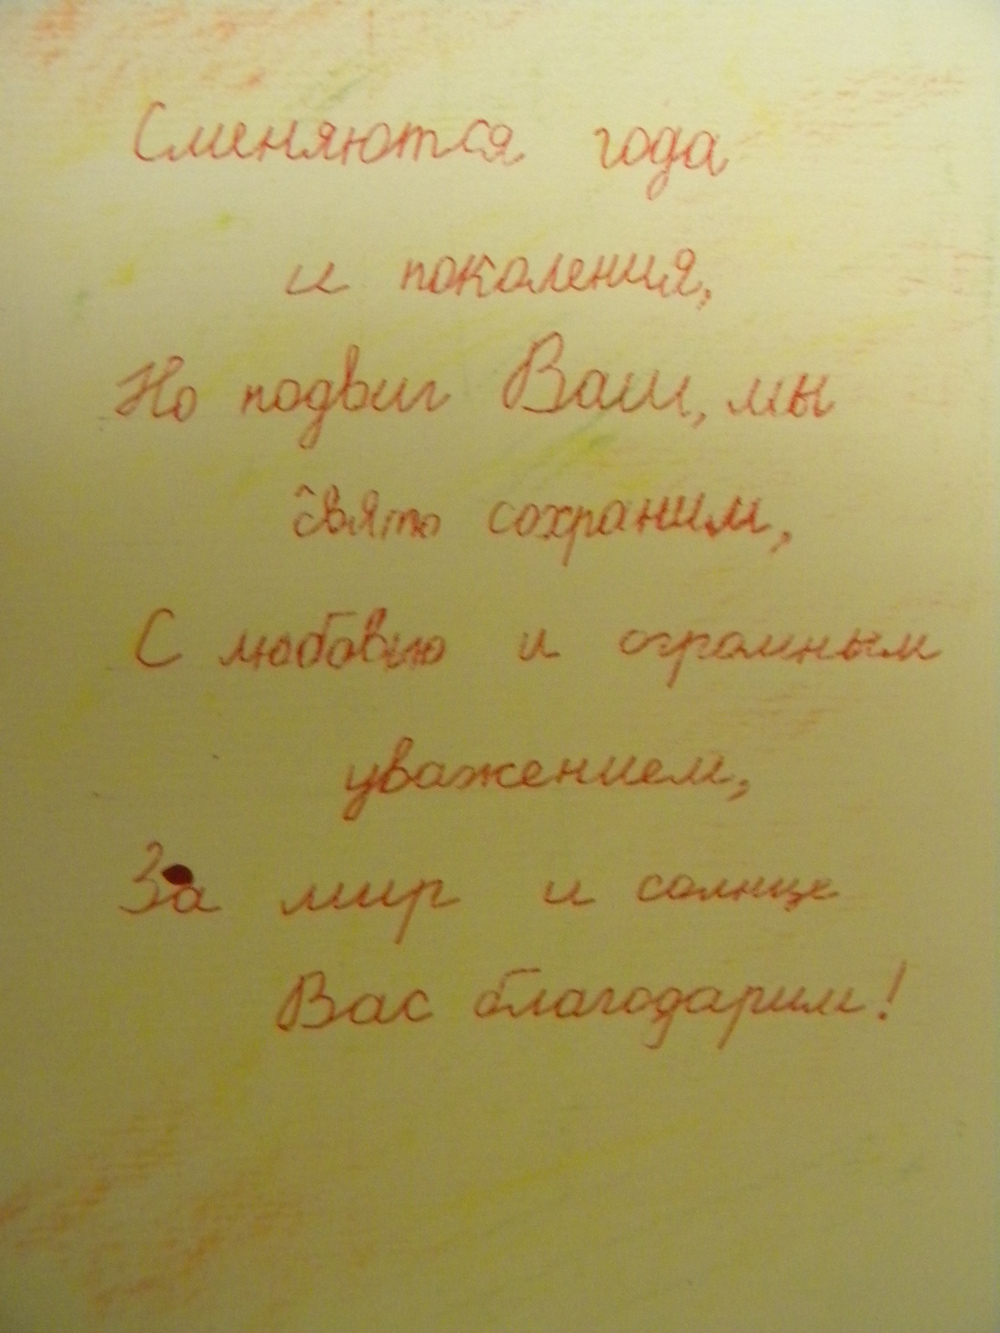 Сменяются года
и поколения,
Но подвиг Ваш, мы
свято сохраним,
С любовью и огромным
уважением,
За мир и солнце
Вас благодарим!